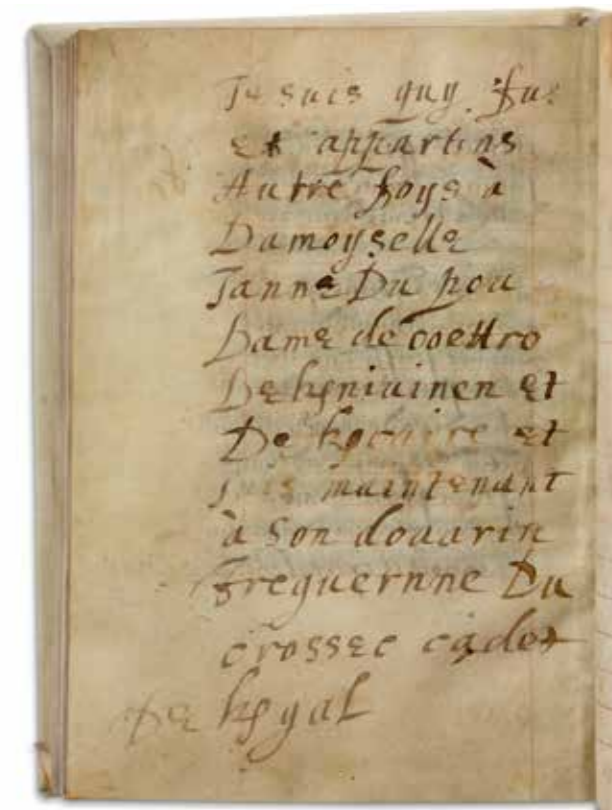 Je suis quy fu
et appartins
Autre foys à
Damoyselle
Janne Du pou
Dame de coettro
De kniuinen et
De et
suis maintenant
à son douarin
freguernne Du
crossec cadet
De kgal